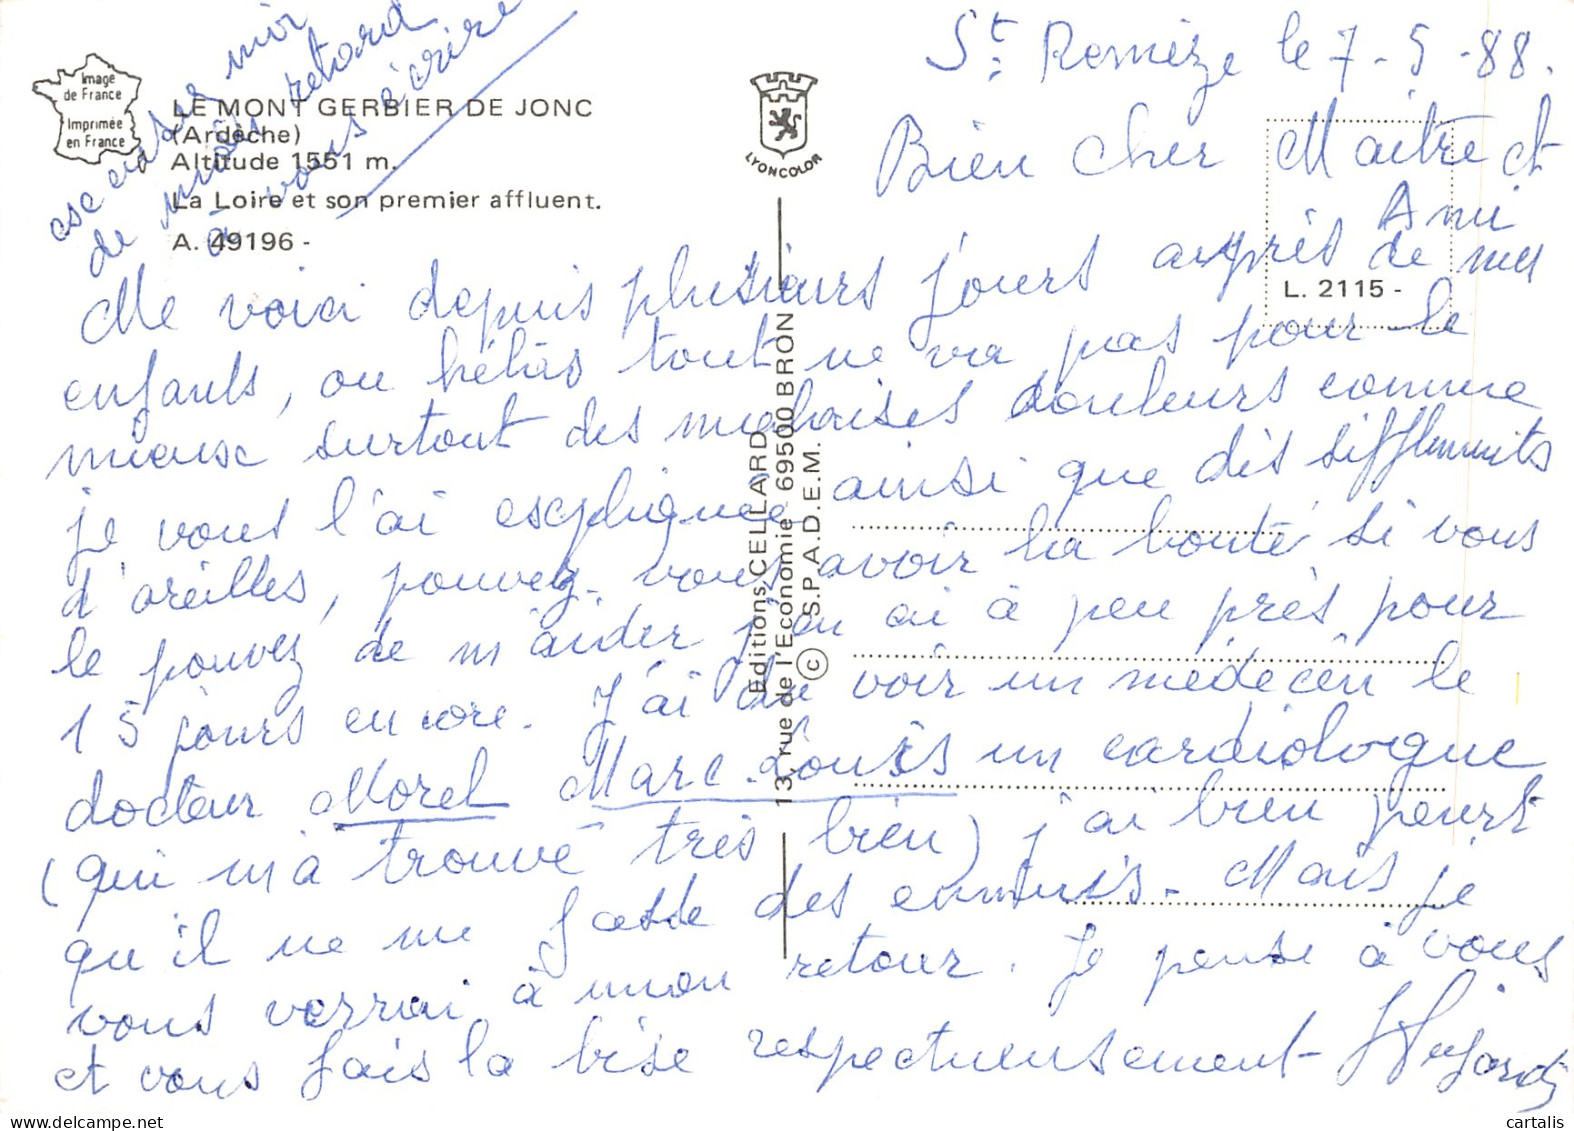 St. Remèze le 7-5-88.
Bien cher Maître et
Ami
Me voici depuis plusieurs jours auprès de mes
enfants, ou hélas tout ne va pas pour le
mieux surtout des malaises douleurs comme
je vous l'ai expliquée ainsi que dés sifflements
d'oreilles, pouvez-vous avoir la bonté si vous
le pouvez de m'aider j'en ai à peu près pour
15 jours encore. J'ai du voir un médecin le
docteur Morel Marc-Louis un cardiologue
(qui m'a trouvé très bien) j'ai bien peur
qu'il ne me fasse des ennuis. Mais je
vous verrai à mon retour. Je pense à vous
et vous fais la bise respectueusement
excusez moi
de mon retard
à vous écrire
Image
de France
Imprimée
en France
LE MONT GERBIER DE JONC
(Ardèche)
Altitude 1551 m.
La Loire et son premier affluent.
A. 49196 -
LYONCOLOR
L. 2115 -
Editions CELLARD
13, rue de l'Economie 69500 BRON
© S.P.A.D.E.M.
cartalis